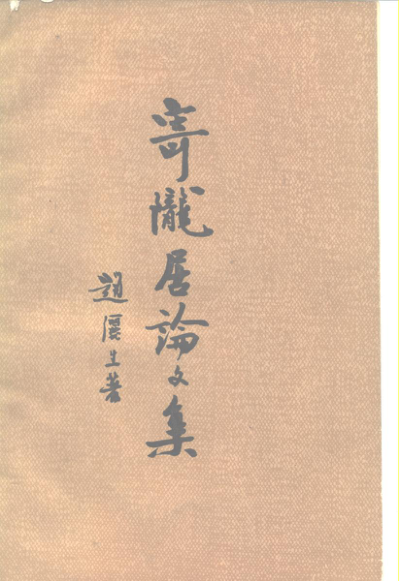 寄隴居論文集
趙儷生著